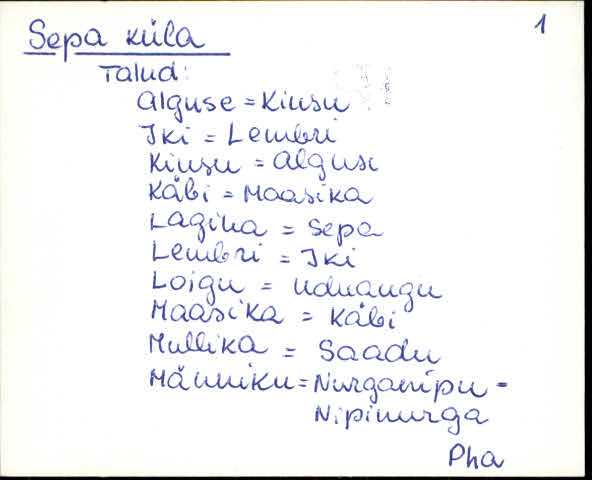 1
Sepa küla
Talud:
Alguse = Kiusu
Iki = Lembri
Kiusu = Alguse
Käbi = Maasika
Lagina = Sepa
Lembri = Iki
Loigu = Uduaugu
Maasika = Käbi
Mullika = Saadu
Männiku = Nurganipu -
Nipinurga
Pha